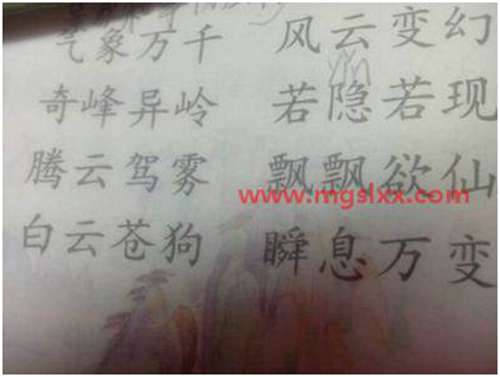 气象万千 风云变幻
奇峰异岭 若隐若现
腾云驾雾 飘飘欲仙
www.mgslxx.com
白云苍狗 瞬息万变